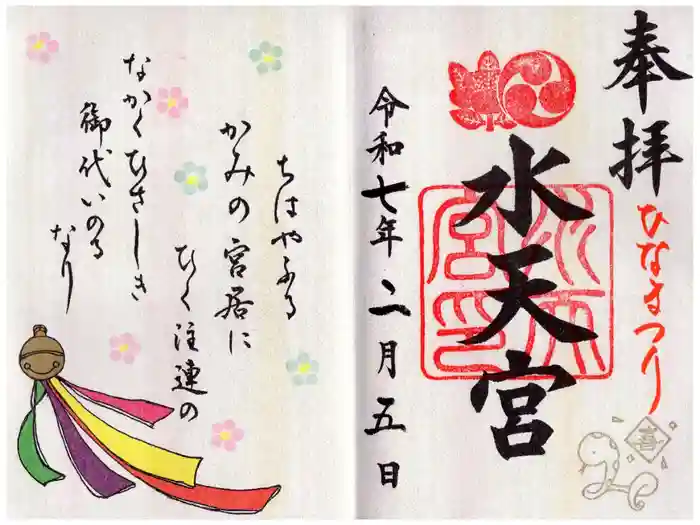 奉拝
ひなまつり
水天宮
令和七年二月五日
ちはやふる
かみの宮居に
ひく注連の
なかくひさしき
御代いのる
なり